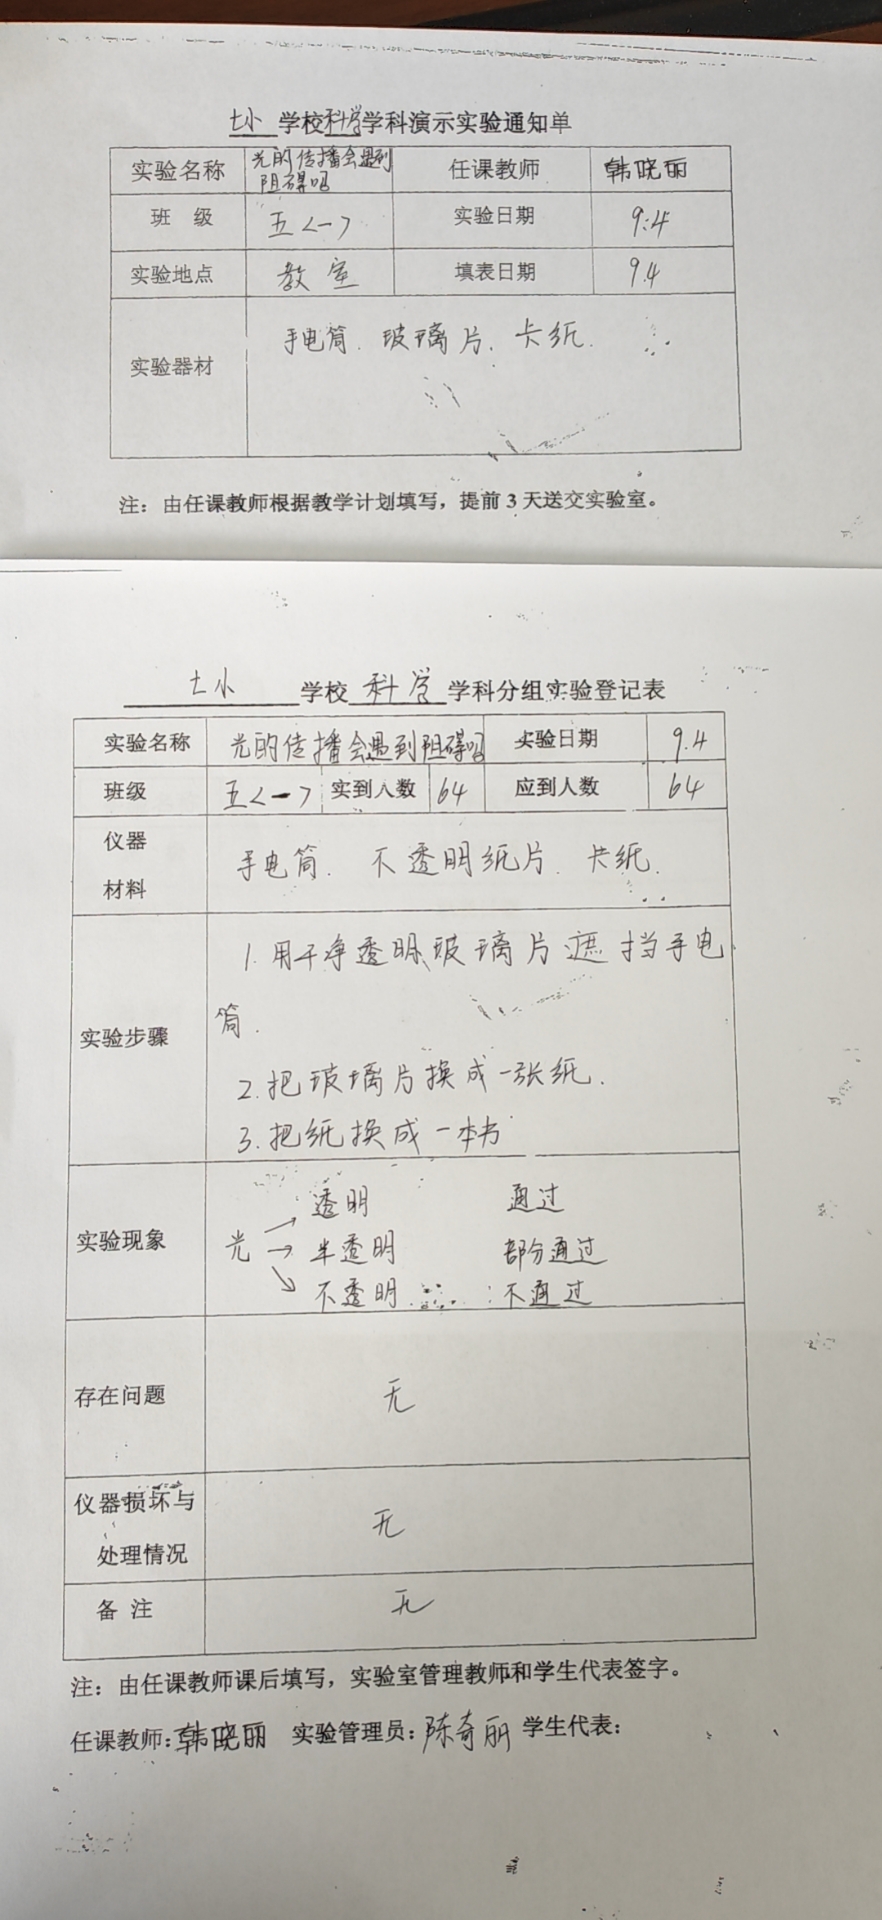 七小学校科学学科演示实验通知单
实验名称 光的传播会遇到阻碍吗 任课教师 韩晓丽
班 级 五<一> 实验日期 9.4
实验地点 教室 填表日期 9.4
实验器材 手电筒. 玻璃片. 卡纸.
注：由任课教师根据教学计划填写，提前3天送交实验室。
七小学校科学学科分组实验登记表
实验名称 光的传播会遇到阻碍吗 实验日期 9.4
班级 五<一> 实到人数 64 应到人数 64
仪器
材料
手电筒. 不透明纸片. 卡纸.
实验步骤
1.用干净透明玻璃片遮挡手电
筒.
2.把玻璃片换成一张纸.
3.把纸换成一本书
实验现象
光
透明 通过
半透明 部分通过
不透明 不通过
存在问题 无
仪器损坏与
处理情况
无
备 注 无
注：由任课教师课后填写，实验室管理教师和学生代表签字。
任课教师:韩晓丽 实验管理员:陈奇丽 学生代表: